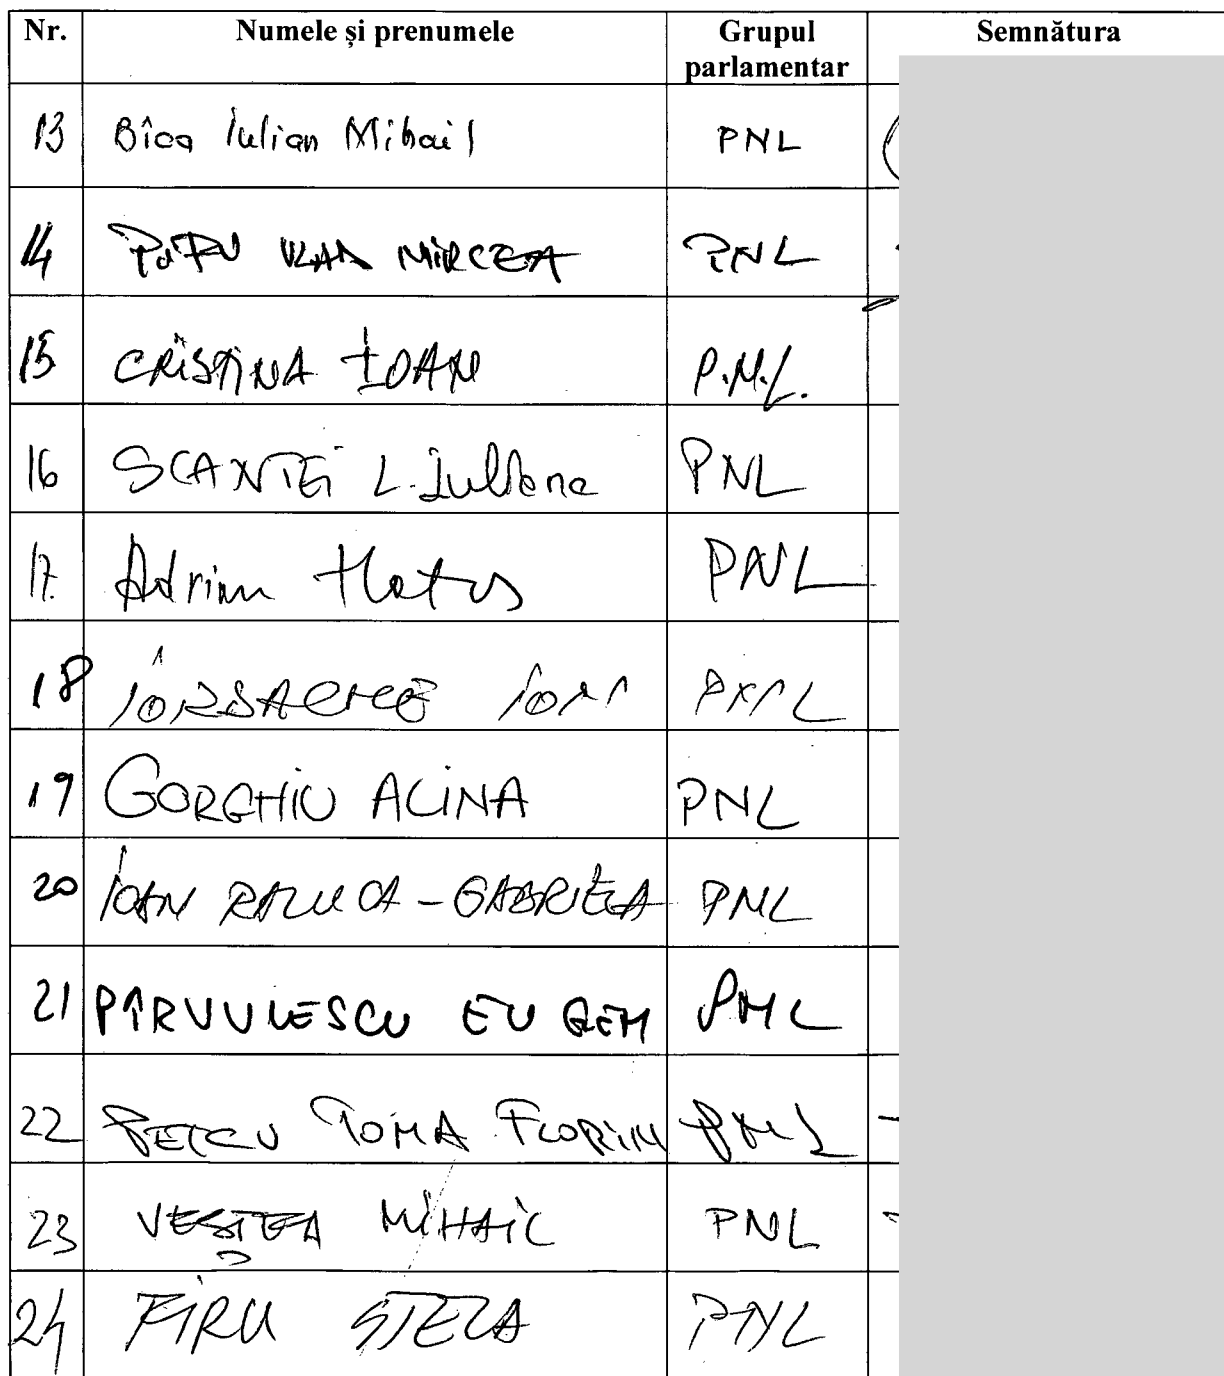 Nr. Numele și prenumele Grupul parlamentar Semnătura
13 Bîca Iulian Mihail PNL
14 VLAD MIRCEA PNL
15 CRISTINA IOAN P.N.L.
16 SCANTEI L. Iuliana PNL
17. Adrian Hatos PNL
18 PNL
19 GORGHIU ALINA PNL
20 IOAN RALUCA-GABRIELA PNL
21 PÎRVULESCU EUGEN PNL
22 PETCU TOMA FLORIN PNL
23 VEȘTEA MIHAIL PNL
24 FIRU STELA PNL